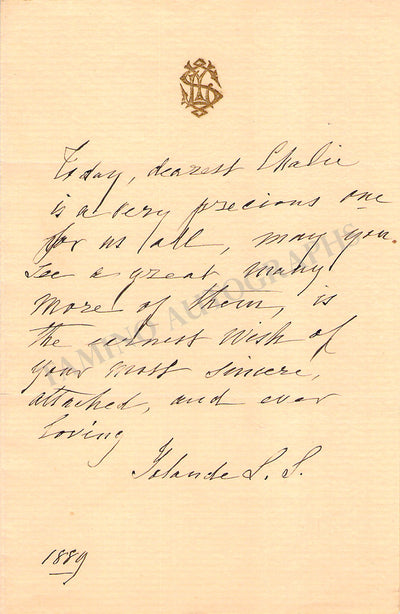 Today, dearest Chalie
is a very precious one
for us all, may you
see a great many
more of them, is
the earnest wish of
your most sincere,
attached, and ever
loving
Yolande S. S.
1889
TAMINO AUTOGRAPHS